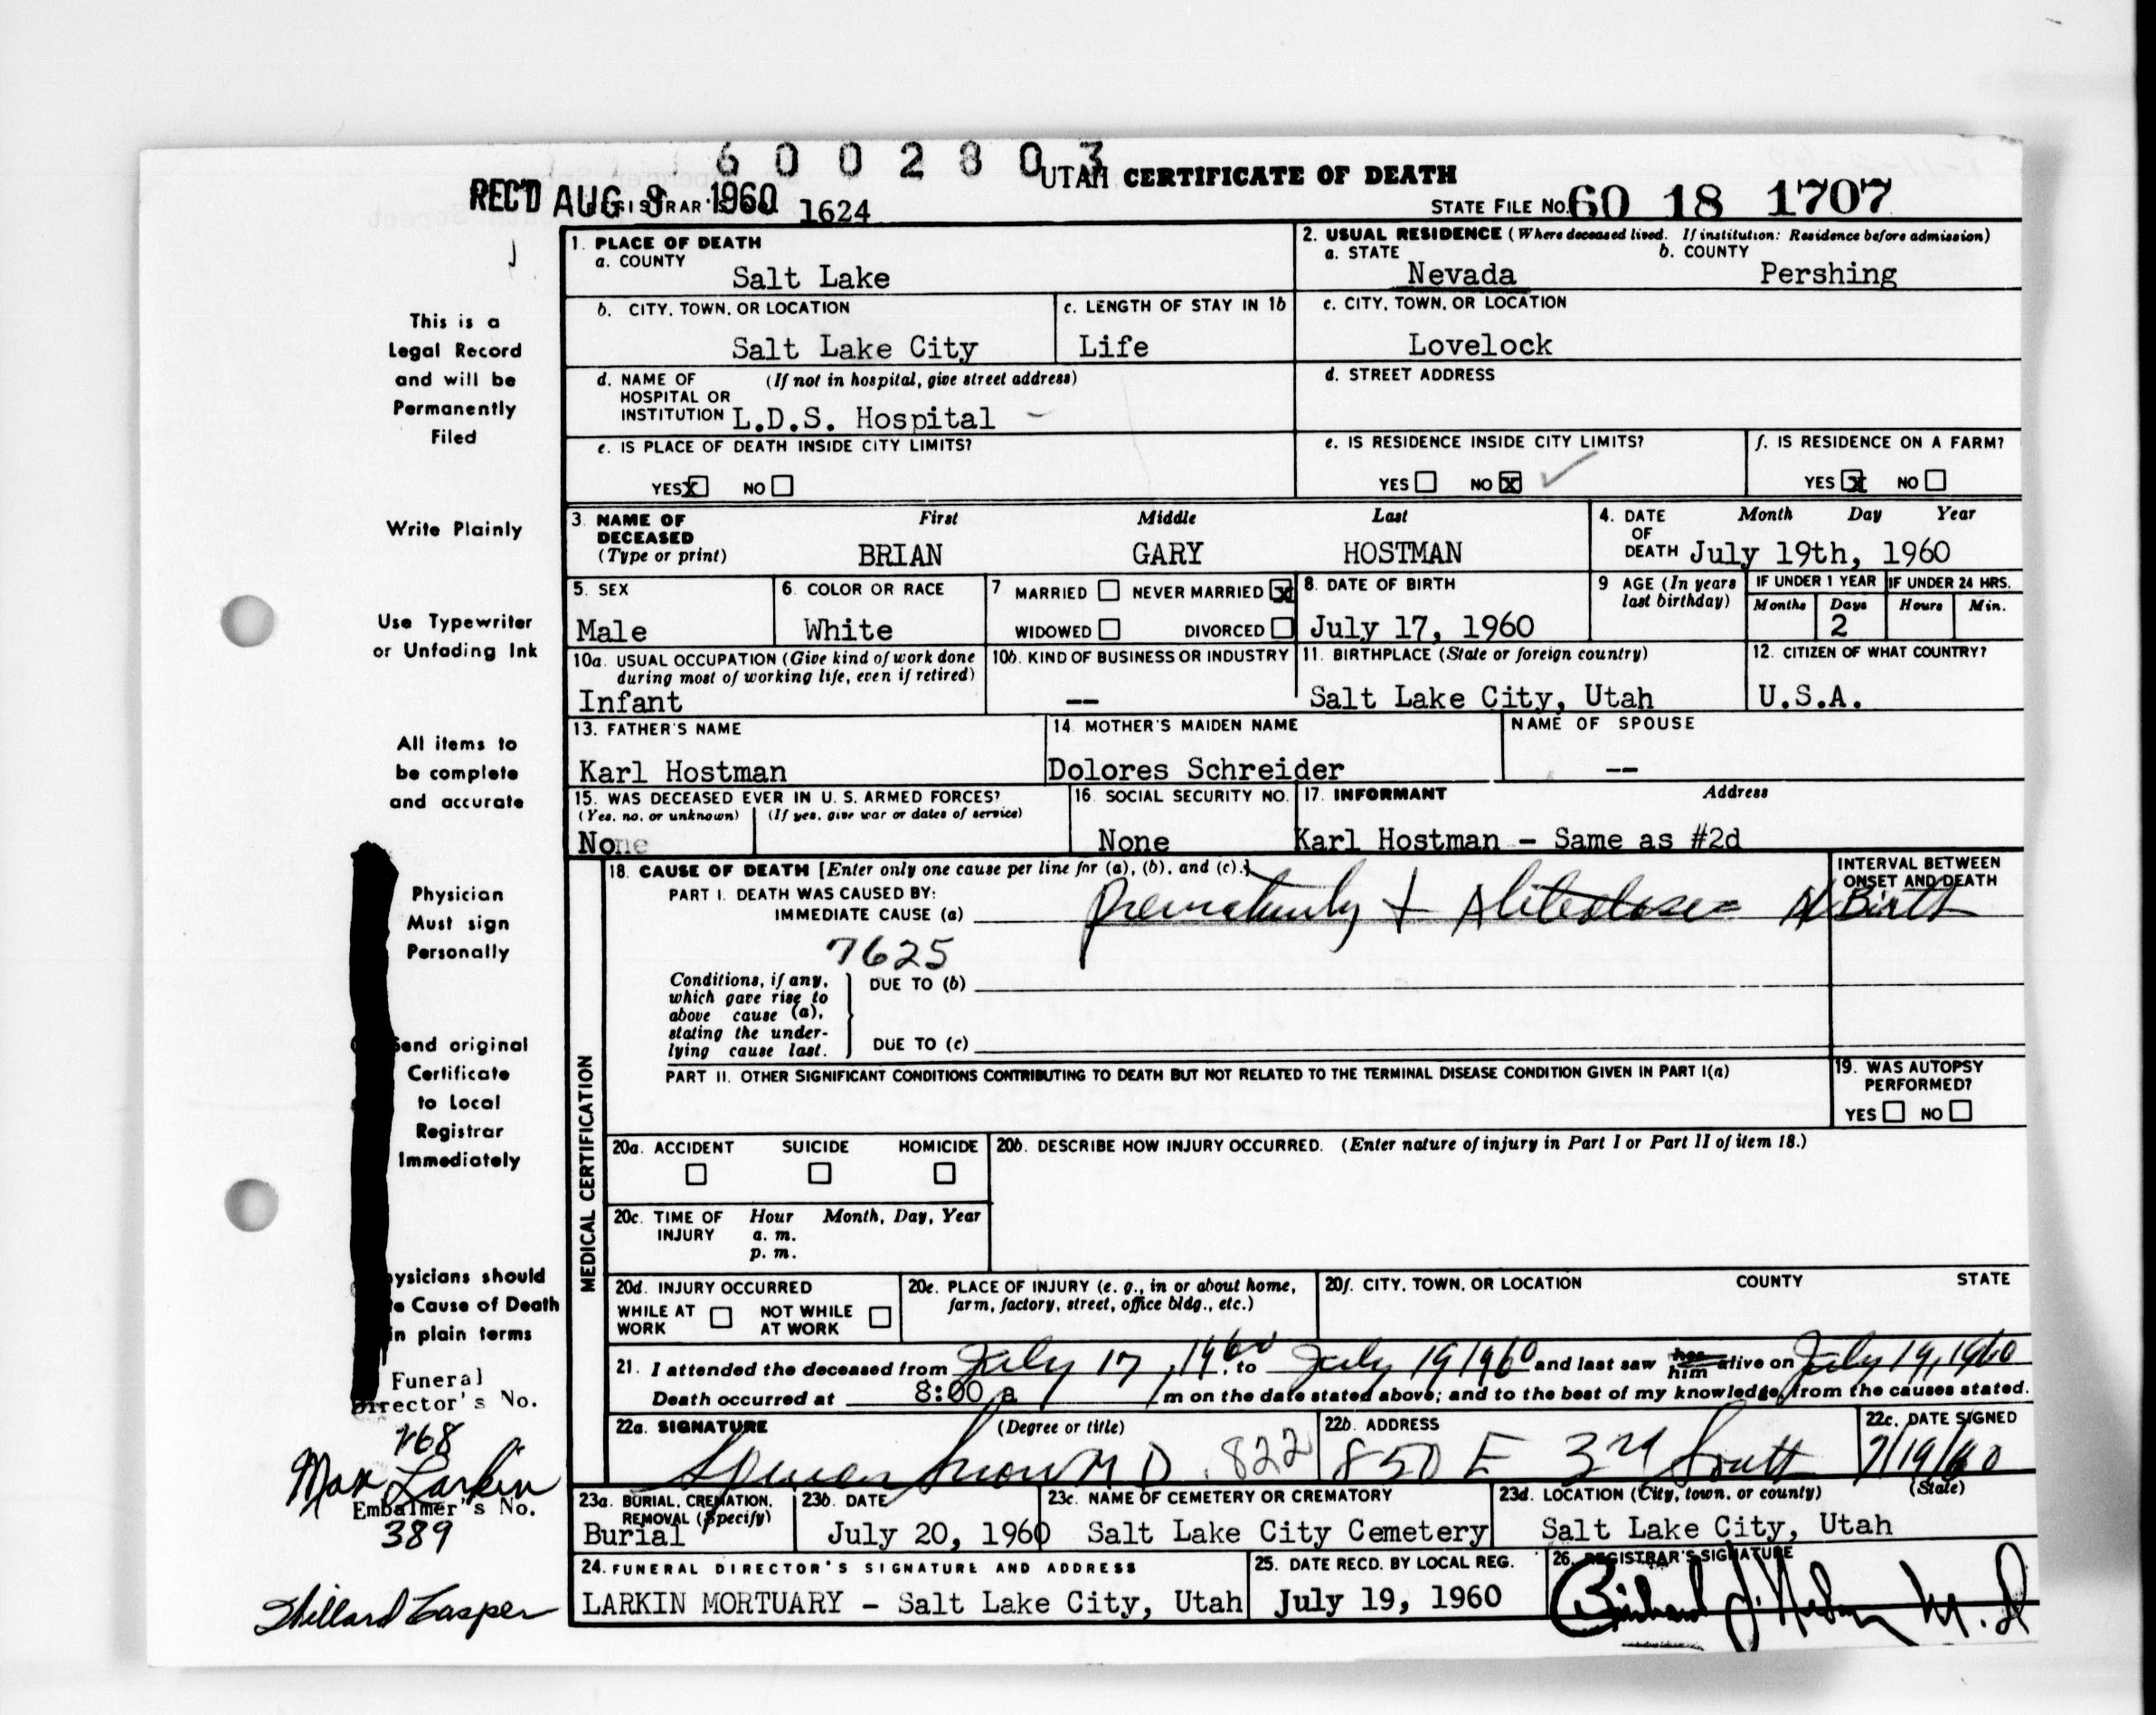 6002803
REC'D AUG 8 1960 1624
UTAH CERTIFICATE OF DEATH
STATE FILE NO. 60 18 1707
This is a
Legal Record
and will be
Permanently
Filed
Write Plainly
Use Typewriter
or Unfading Ink
All items to
be complete
and accurate
Physician
Must sign
Personally
Send original
Certificate
to Local
Registrar
Immediately
ysicians should
e Cause of Death
in plain terms
Funeral
Director's No.
268
Max Larkin
Embalmer's No.
389
Willard Casper
1. PLACE OF DEATH
a. COUNTY
Salt Lake
2. USUAL RESIDENCE (Where deceased lived. If institution: Residence before admission)
a. STATE b. COUNTY
Nevada Pershing
b. CITY, TOWN, OR LOCATION
Salt Lake City
c. LENGTH OF STAY IN 1b
Life
c. CITY, TOWN, OR LOCATION
Lovelock
d. NAME OF (If not in hospital, give street address)
HOSPITAL OR
INSTITUTION L.D.S. Hospital
d. STREET ADDRESS
e. IS PLACE OF DEATH INSIDE CITY LIMITS?
YES X NO
e. IS RESIDENCE INSIDE CITY LIMITS?
YES NO X
f. IS RESIDENCE ON A FARM?
YES X NO
3. NAME OF DECEASED First Middle Last
(Type or print) BRIAN GARY HOSTMAN
4. DATE Month Day Year
OF
DEATH July 19th, 1960
5. SEX
Male
6. COLOR OR RACE
White
7 MARRIED NEVER MARRIED X
WIDOWED DIVORCED
8. DATE OF BIRTH
July 17, 1960
9 AGE (In years
last birthday)
IF UNDER 1 YEAR IF UNDER 24 HRS.
Months Days Hours Min.
2
10a. USUAL OCCUPATION (Give kind of work done
during most of working life, even if retired)
Infant
10b. KIND OF BUSINESS OR INDUSTRY
--
11. BIRTHPLACE (State or foreign country)
Salt Lake City, Utah
12. CITIZEN OF WHAT COUNTRY?
U.S.A.
13. FATHER'S NAME
Karl Hostman
14. MOTHER'S MAIDEN NAME
Dolores Schreider
NAME OF SPOUSE
--
15. WAS DECEASED EVER IN U. S. ARMED FORCES?
(Yes, no, or unknown) (If yes, give war or dates of service)
None
16. SOCIAL SECURITY NO.
None
17. INFORMANT Address
Karl Hostman - Same as #2d
MEDICAL CERTIFICATION
18. CAUSE OF DEATH [Enter only one cause per line for (a), (b), and (c).]
PART I. DEATH WAS CAUSED BY:
IMMEDIATE CAUSE (a) Prematurity +
INTERVAL BETWEEN
ONSET AND DEATH
Birth
7625
Conditions, if any,
which gave rise to
above cause (a),
stating the under-
lying cause last.
DUE TO (b)
DUE TO (c)
PART II. OTHER SIGNIFICANT CONDITIONS CONTRIBUTING TO DEATH BUT NOT RELATED TO THE TERMINAL DISEASE CONDITION GIVEN IN PART I(a)
19. WAS AUTOPSY
PERFORMED?
YES NO
20a. ACCIDENT SUICIDE HOMICIDE
20b. DESCRIBE HOW INJURY OCCURRED. (Enter nature of injury in Part I or Part II of item 18.)
20c. TIME OF INJURY Hour Month, Day, Year
a. m.
p. m.
20d. INJURY OCCURRED
WHILE AT WORK NOT WHILE AT WORK
20e. PLACE OF INJURY (e. g., in or about home,
farm, factory, street, office bldg., etc.)
20f. CITY, TOWN, OR LOCATION COUNTY STATE
21. I attended the deceased from July 17, 1960 to July 19 1960 and last saw her him alive on July 19, 1960
Death occurred at 8:00 a m on the date stated above; and to the best of my knowledge, from the causes stated.
22a. SIGNATURE (Degree or title)
Spencer Snow M D 822
22b. ADDRESS
850 E 3rd South
22c. DATE SIGNED
7/19/60
23a. BURIAL, CREMATION,
REMOVAL (Specify)
Burial
23b. DATE
July 20, 1960
23c. NAME OF CEMETERY OR CREMATORY
Salt Lake City Cemetery
23d. LOCATION (City, town, or county) (State)
Salt Lake City, Utah
24. FUNERAL DIRECTOR'S SIGNATURE AND ADDRESS
LARKIN MORTUARY - Salt Lake City, Utah
25. DATE RECD. BY LOCAL REG.
July 19, 1960
26. REGISTRAR'S SIGNATURE
M.D